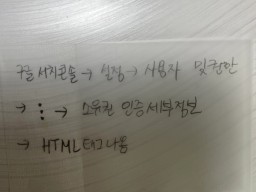 구글 서치콘솔 → 설정 → 사용자 및 권한
→ ⋮ → 소유권 인증 세부정보
→ HTML 태그 나옴